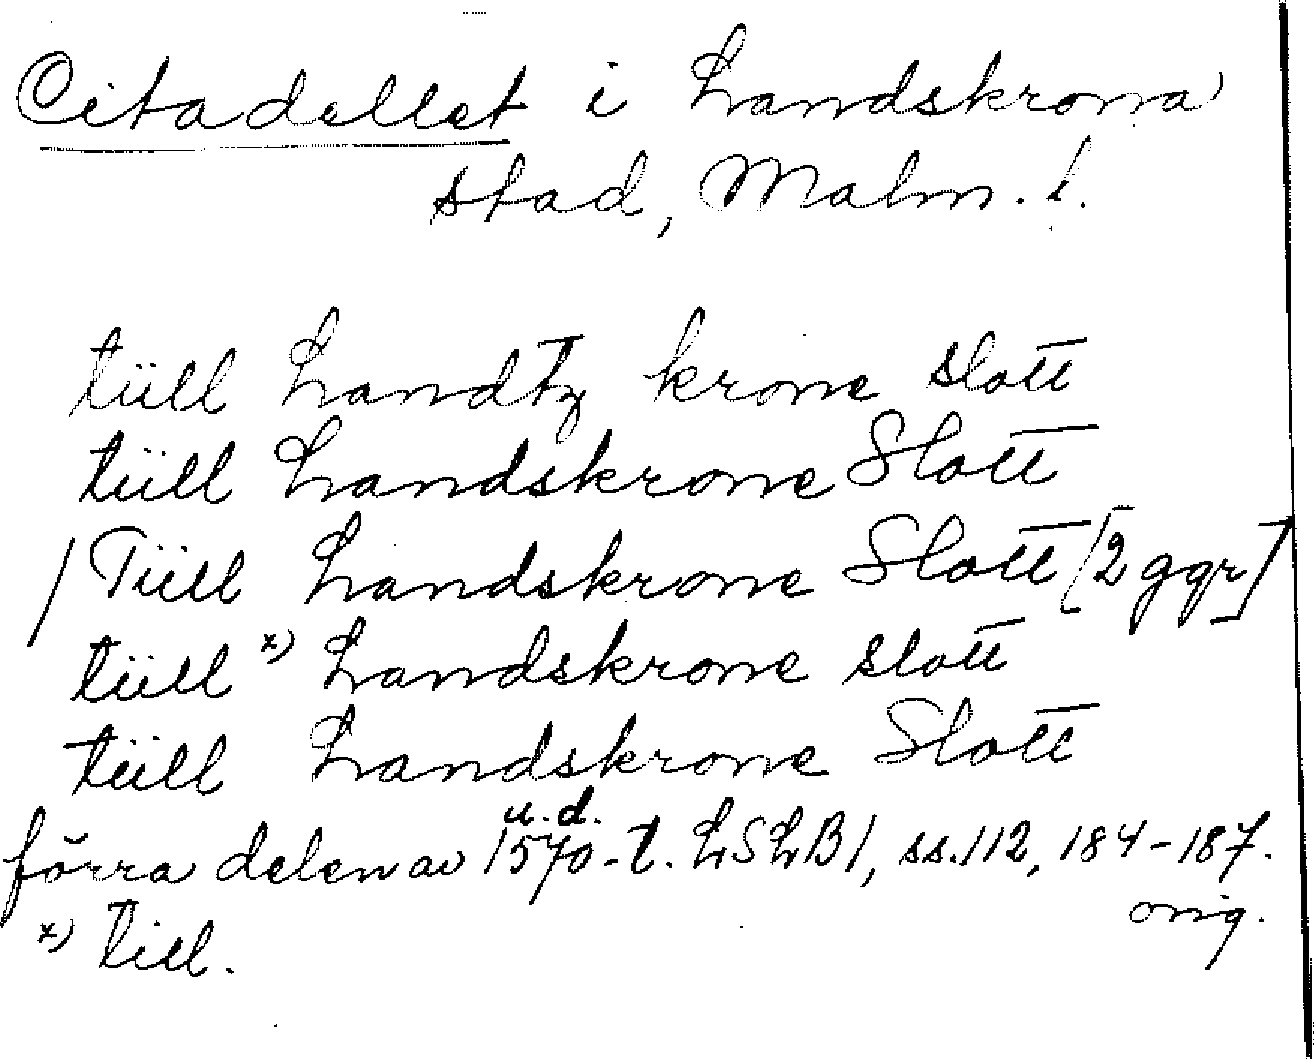 Citadellet i Landskrona
stad, Malm. l.
tüll Landtz krone slott
tüll Landskrone Slott
/ Tüll Landskrone Slott [2 ggr]
tüll x) Landskrone slott
tüll Landskrone Slott
u.d.
förra delen av 1570-t. LSLB1, ss. 112, 184-187.
orig.
x) till.